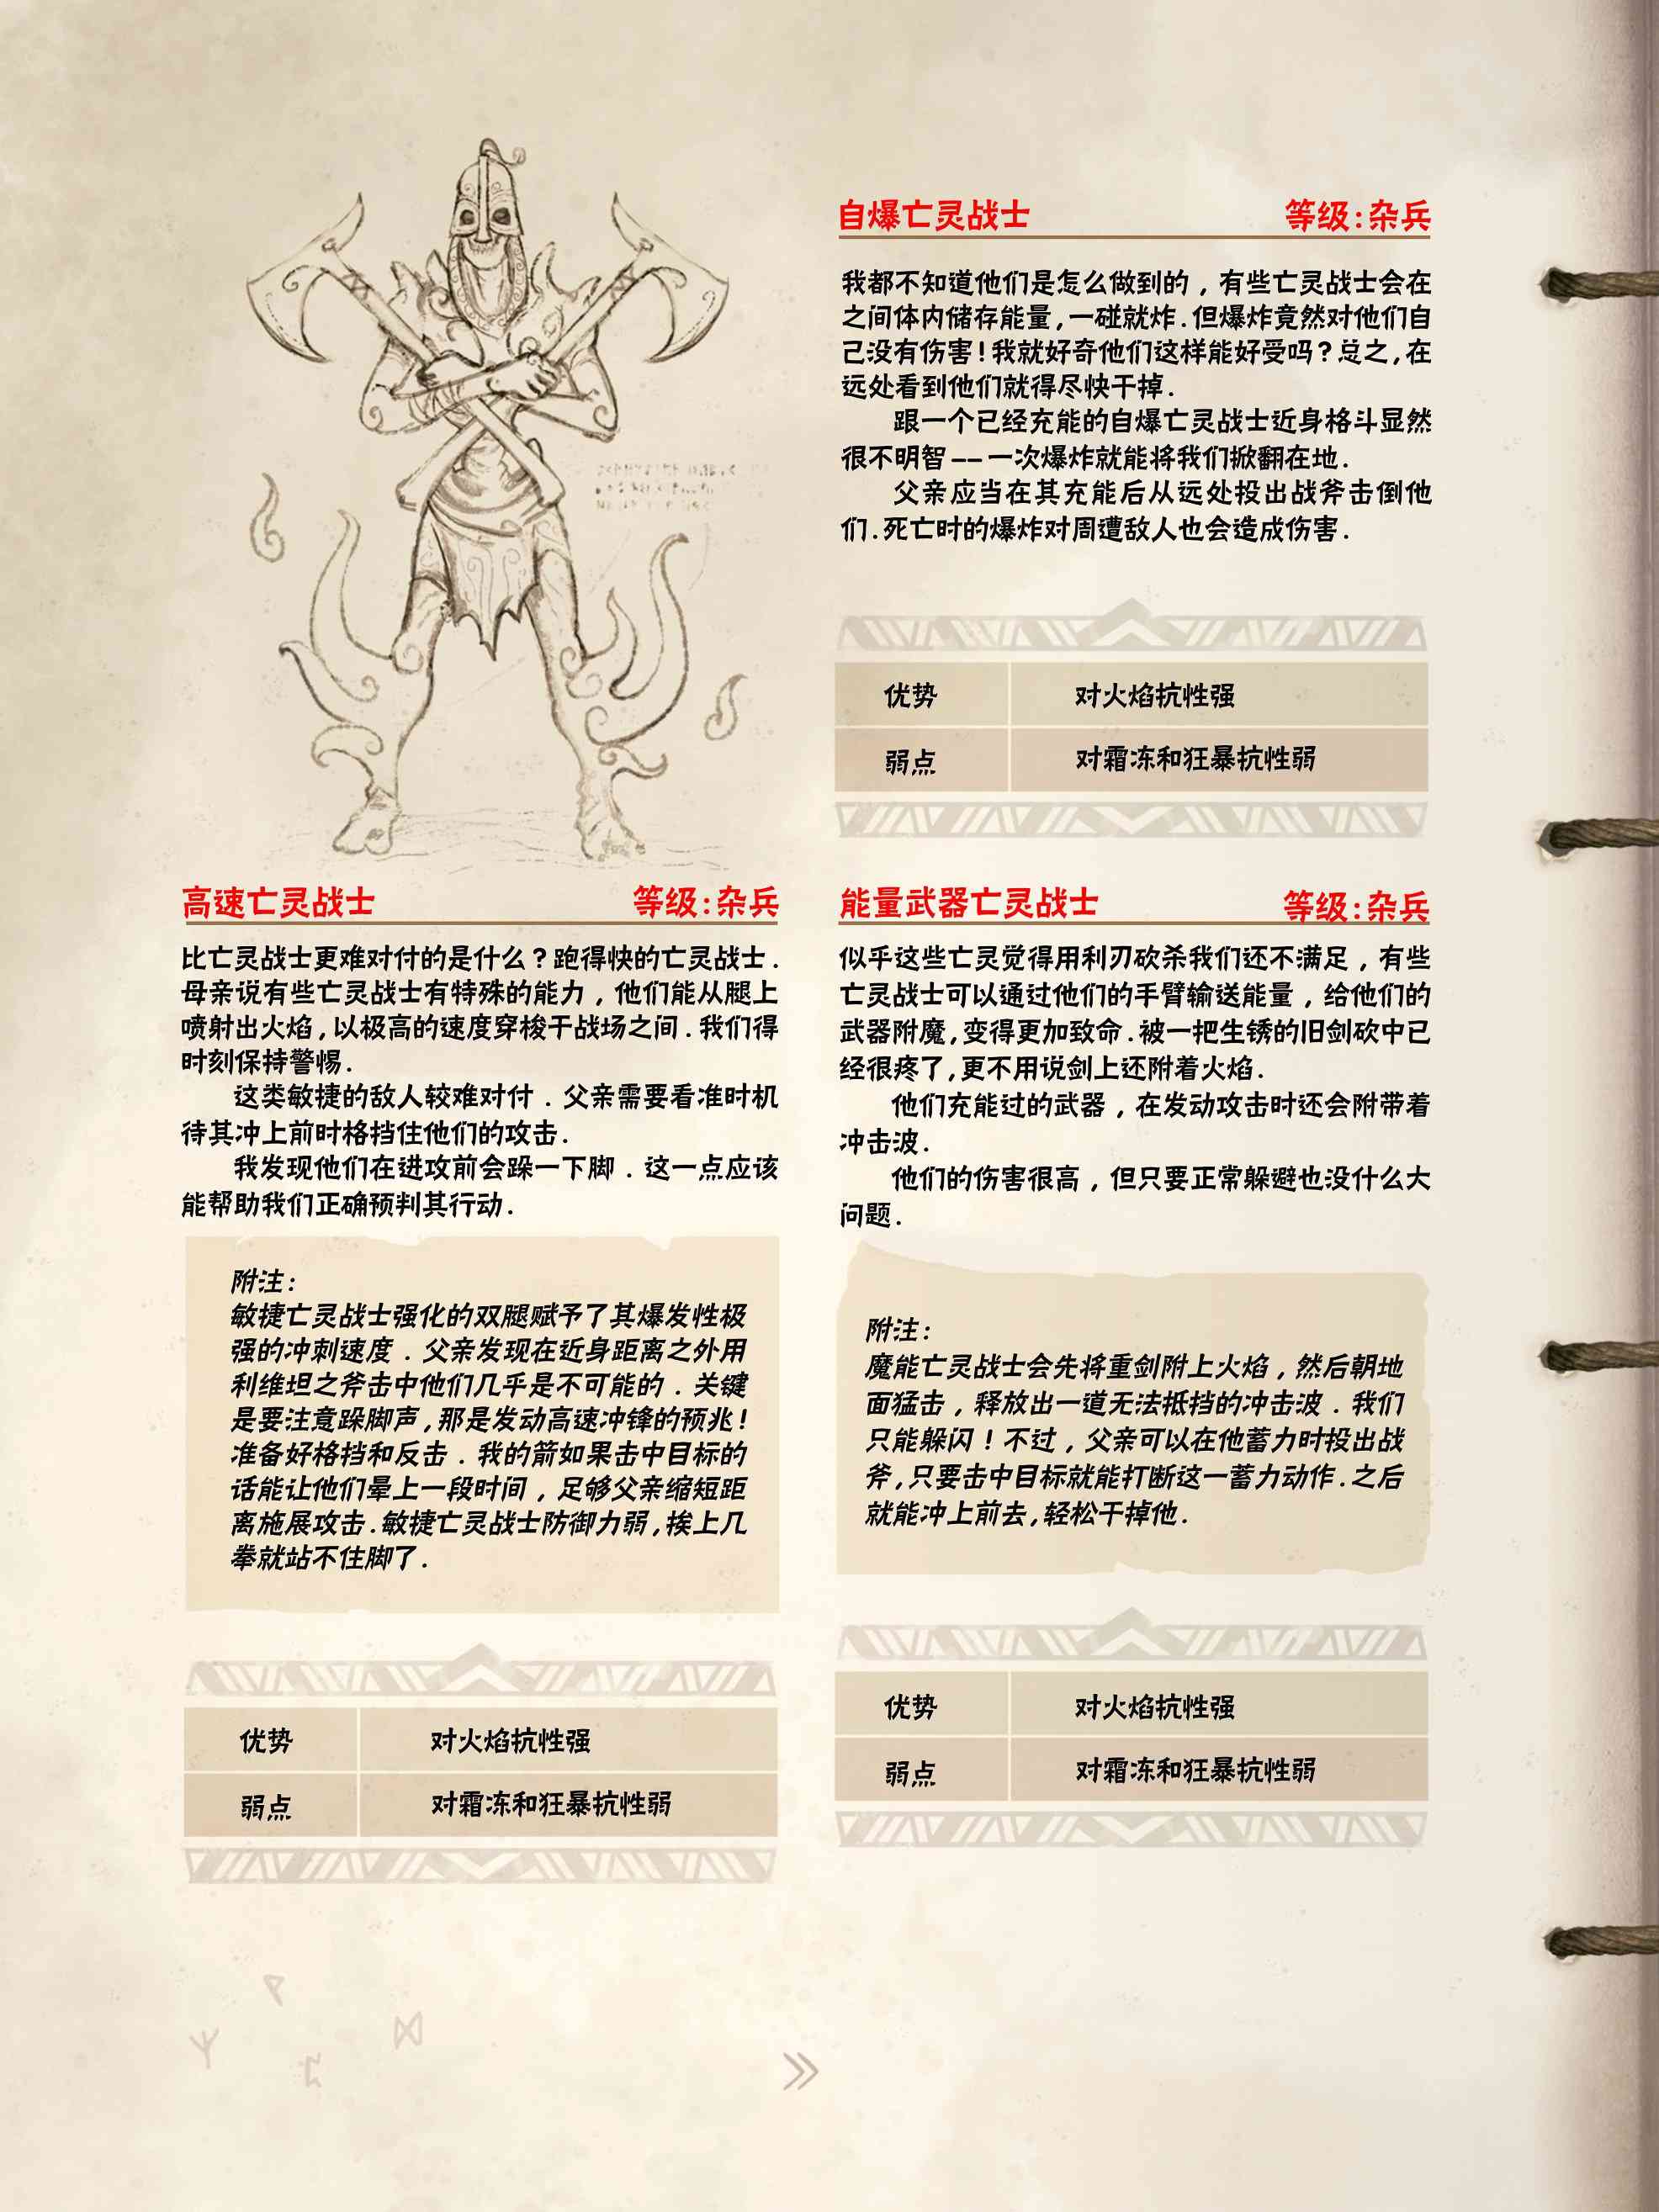 自爆亡灵战士 等级:杂兵
我都不知道他们是怎么做到的，有些亡灵战士会在
之间体内储存能量,一碰就炸.但爆炸竟然对他们自
己没有伤害!我就好奇他们这样能好受吗?总之,在
远处看到他们就得尽快干掉.
跟一个已经充能的自爆亡灵战士近身格斗显然
很不明智——一次爆炸就能将我们掀翻在地.
父亲应当在其充能后从远处投出战斧击倒他
们.死亡时的爆炸对周遭敌人也会造成伤害.
优势 对火焰抗性强
弱点 对霜冻和狂暴抗性弱
高速亡灵战士 等级:杂兵
比亡灵战士更难对付的是什么?跑得快的亡灵战士.
母亲说有些亡灵战士有特殊的能力，他们能从腿上
喷射出火焰,以极高的速度穿梭于战场之间.我们得
时刻保持警惕.
这类敏捷的敌人较难对付.父亲需要看准时机
待其冲上前时格挡住他们的攻击.
我发现他们在进攻前会跺一下脚.这一点应该
能帮助我们正确预判其行动.
附注:
敏捷亡灵战士强化的双腿赋予了其爆发性极
强的冲刺速度.父亲发现在近身距离之外用
利维坦之斧击中他们几乎是不可能的.关键
是要注意跺脚声,那是发动高速冲锋的预兆!
准备好格挡和反击.我的箭如果击中目标的
话能让他们晕上一段时间，足够父亲缩短距
离施展攻击.敏捷亡灵战士防御力弱,挨上几
拳就站不住脚了.
优势 对火焰抗性强
弱点 对霜冻和狂暴抗性弱
能量武器亡灵战士 等级:杂兵
似乎这些亡灵觉得用利刃砍杀我们还不满足，有些
亡灵战士可以通过他们的手臂输送能量，给他们的
武器附魔,变得更加致命.被一把生锈的旧剑砍中已
经很疼了,更不用说剑上还附着火焰.
他们充能过的武器，在发动攻击时还会附带着
冲击波.
他们的伤害很高，但只要正常躲避也没什么大
问题.
附注:
魔能亡灵战士会先将重剑附上火焰，然后朝地
面猛击，释放出一道无法抵挡的冲击波.我们
只能躲闪!不过，父亲可以在他蓄力时投出战
斧,只要击中目标就能打断这一蓄力动作.之后
就能冲上前去,轻松干掉他.
优势 对火焰抗性强
弱点 对霜冻和狂暴抗性弱